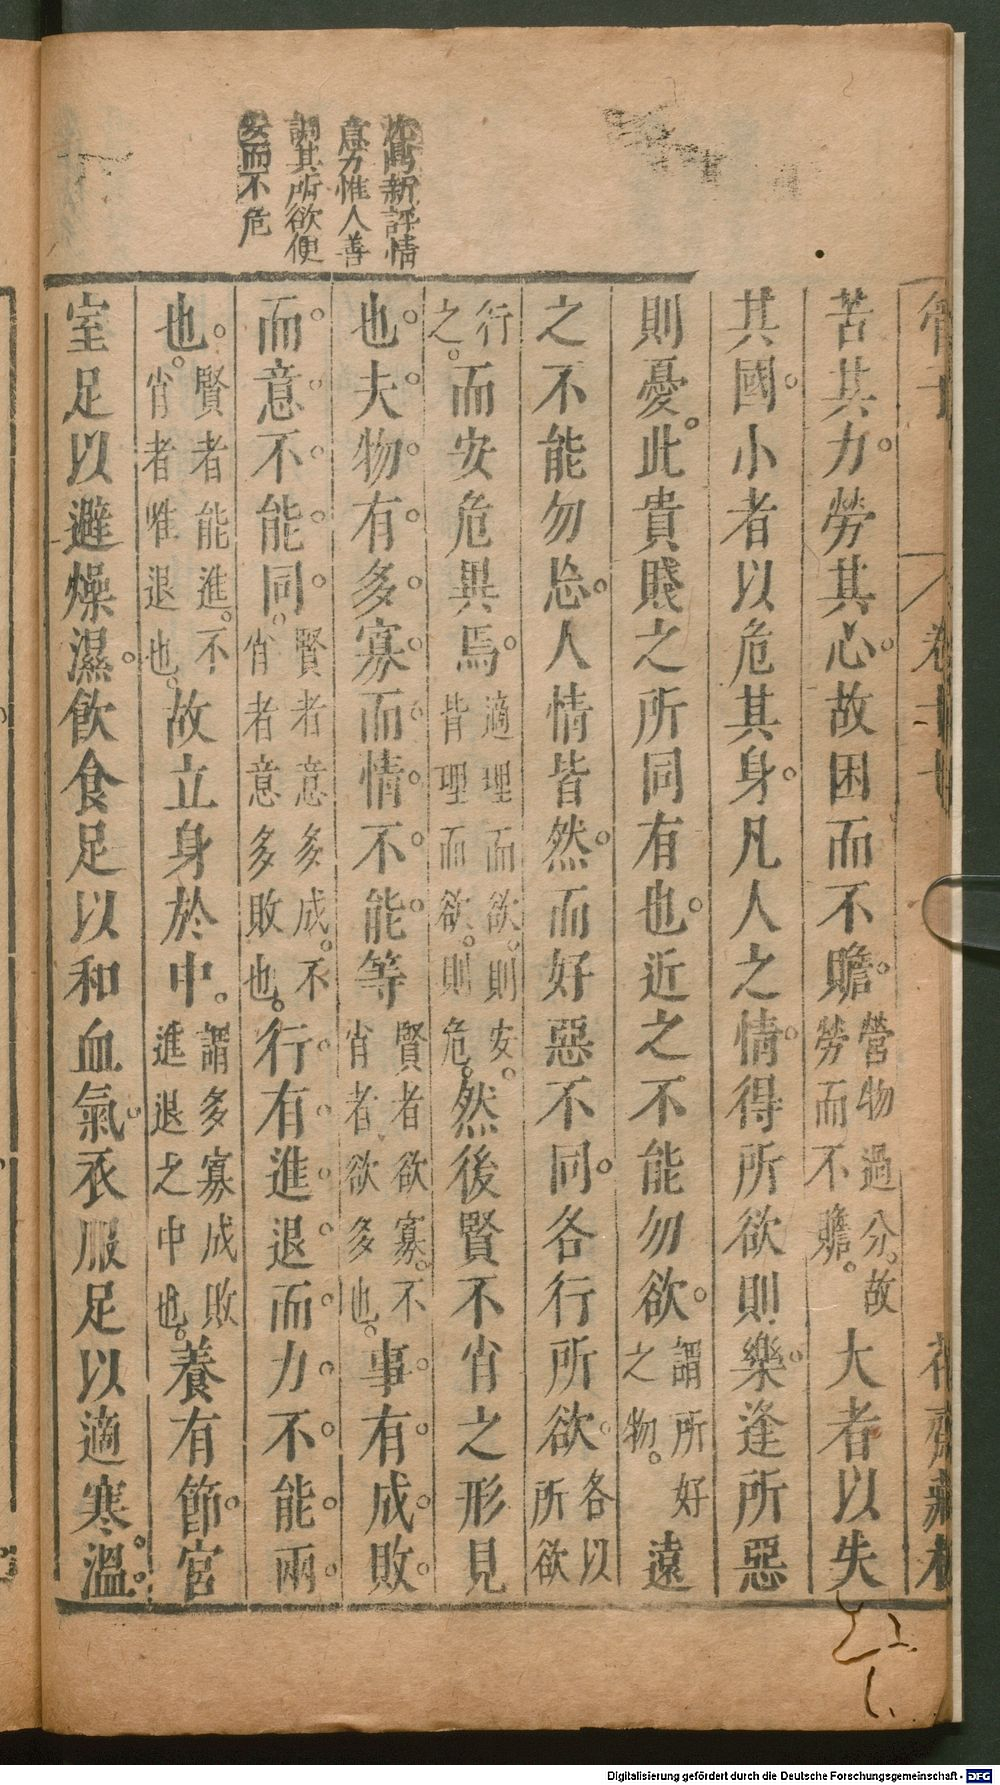 沈鼎新評情
意力惟人善
調其所欲便
安而不危
管子
卷十七
花齋藏板
苦其力。勞其心。故困而不贍。營物過分。故勞而不贍。大者以失
其國。小者以危其身。凡人之情。得所欲則樂。逢所惡
則憂。此貴賤之所同有也。近之不能勿欲。謂所好之物。遠
之不能勿忘。人情皆然。而好惡不同。各行所欲。各以所欲
行之。而安危異焉。適理而欲。則安。皆理而欲。則危。然後賢不肖之形見
也。夫物有多寡。而情不能等。賢者欲寡。不肖者欲多也。事有成敗。
而意不能同。賢者意多成。不肖者意多敗也。行有進退。而力不能兩
也。賢者能進。不肖者唯退也。故立身於中。謂多寡成敗進退之中也。養有節。宮
室足以避燥濕。飲食足以和血氣。衣服足以適寒。溫。
Digitalisierung gefördert durch die Deutsche Forschungsgemeinschaft - DFG